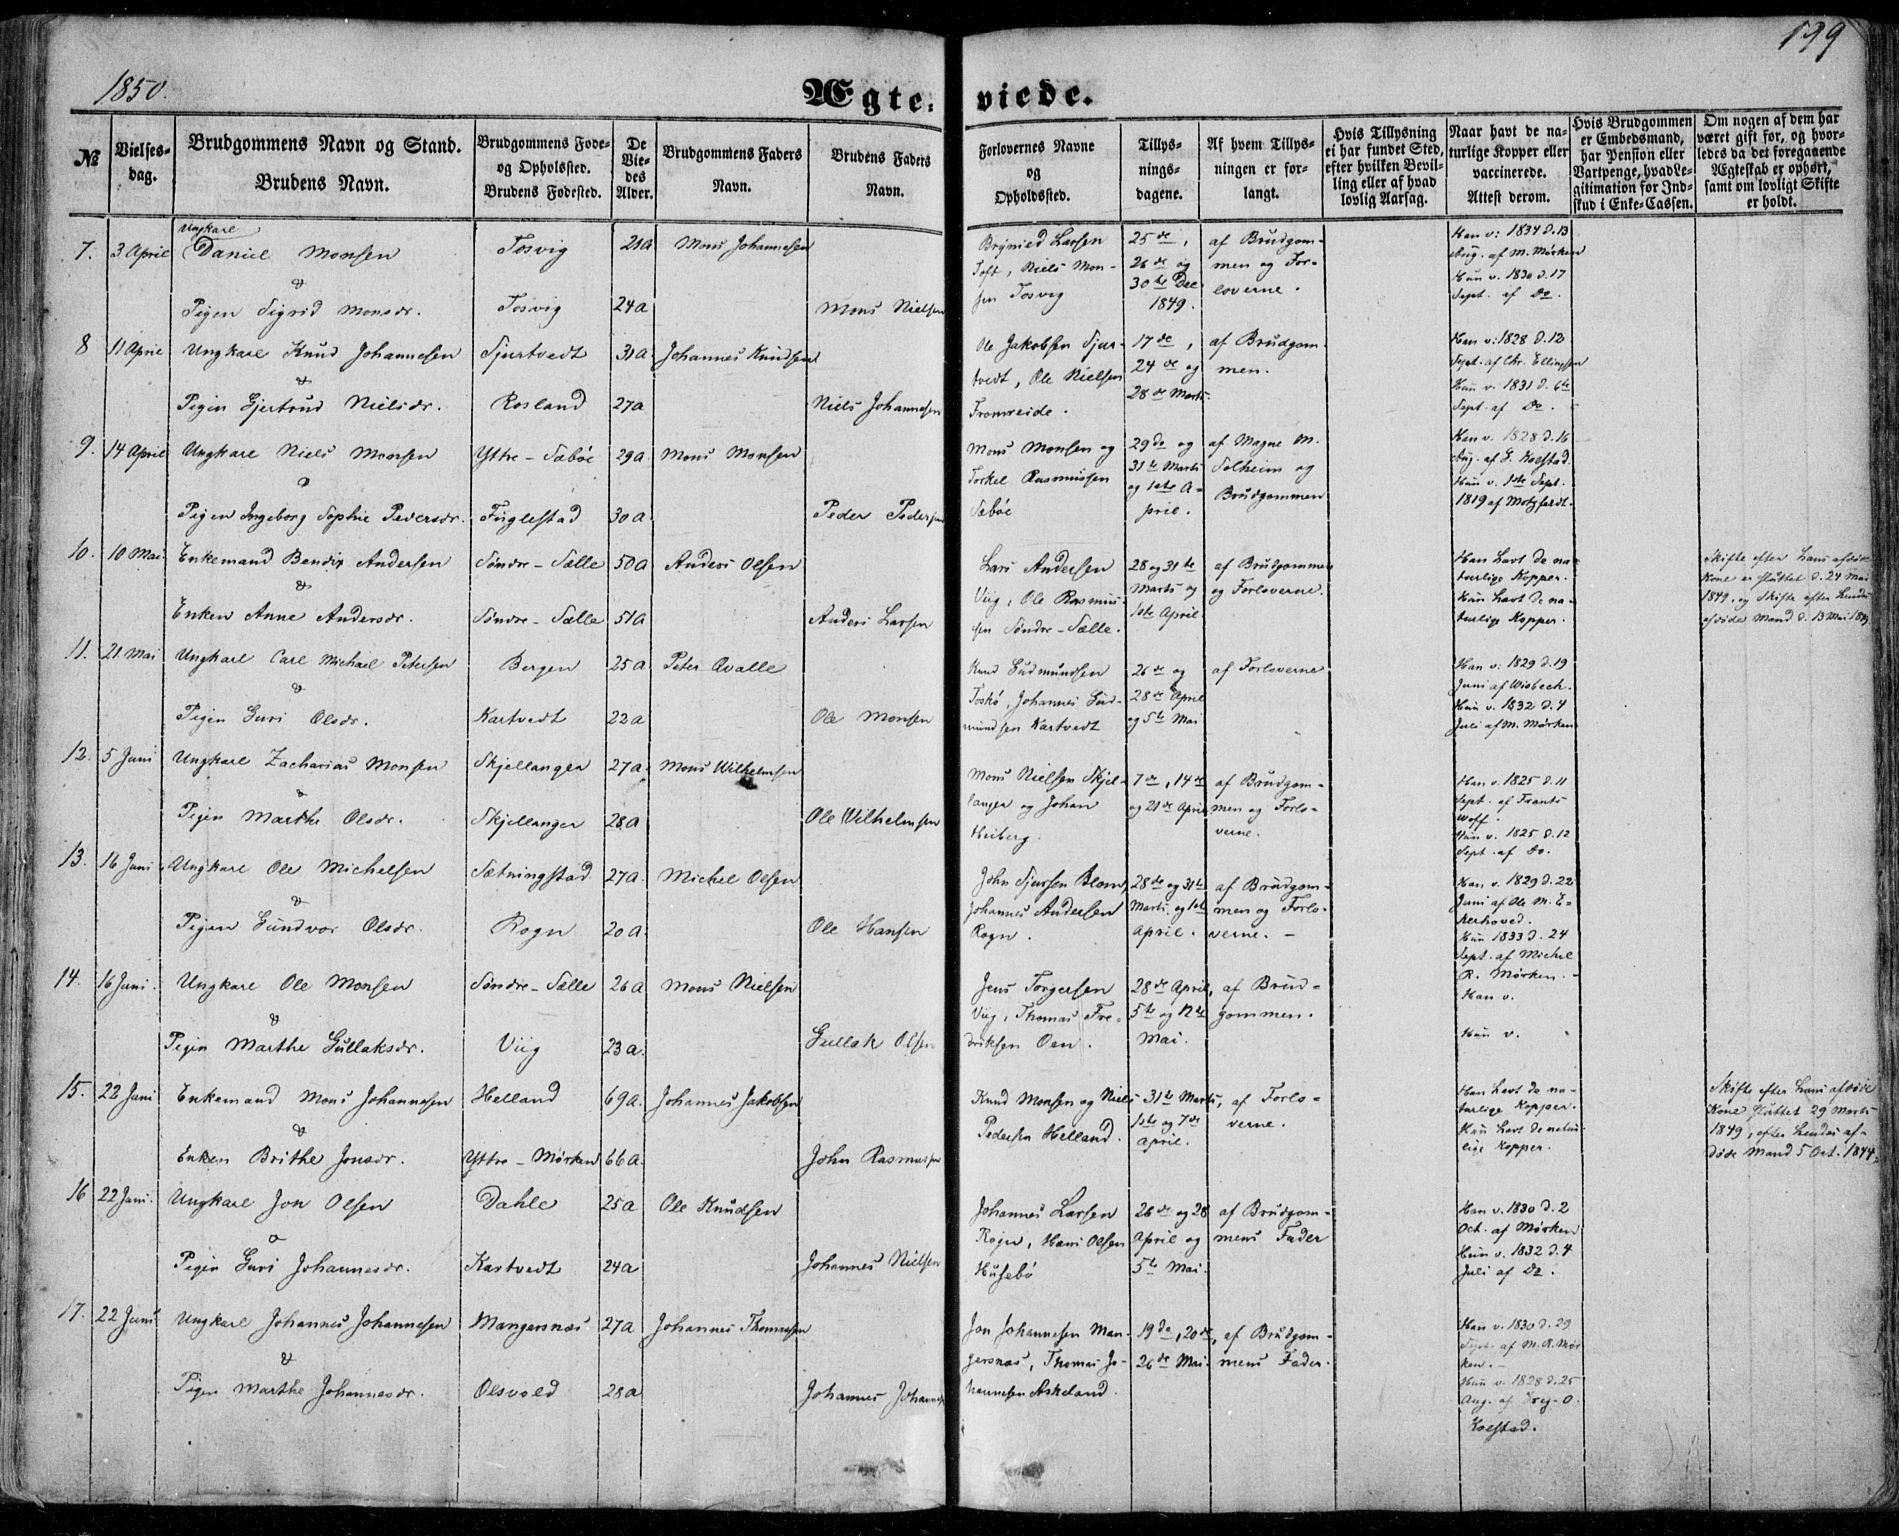 1850.
Ægteviede.
199
№
Vielses-
dag.
Brudgommens Navn og Stand.
Brudens Navn.
Brudgommens Føde-
og Opholsted.
Brudens Fødested.
De
Vie-
des
Alder.
Brudgommens Faders
Navn.
Brudens Faders
Navn.
Forlovernes Navne
og
Opholdssted.
Tillys-
nings-
dagene.
Af hvem Tillys-
ningen er for-
langt.
Hvis Tillysning
ei har fundet Sted,
efter hvilken Bevil-
ling eller af hvad
lovlig Aarsag.
Naar havt de na-
turlige Kopper eller
vaccinerede.
Attest derom.
Hvis Brudgommen
er Embedsmand,
har Pension eller
Vartpenge, hvad Le-
gitimation for Ind-
skud i Enke-Cassen.
Om nogen af dem har
været gift før, og hvor-
ledes da det foregaaende
Ægteskab er ophørt,
samt om lovligt Skifte
er holdt.
7. 3 April Ungkarl Daniel Monsen Tosvig 21a Mons Johannesen
&
Pigen Sigrid Monsdr. Tosvig 24a Mons Nielsen
Brynied Larsen
Toft, Niels Mon-
sen Tosvig
25de,
26de og
30te Dec
1849.
af Brudgom-
men og For-
loverne.
Han v: 1834 d. 13
Aug. af M. Mørken
Hun v. 1830 d. 17
Sept. af Do.
8 11 April Ungkarl Knud Johannesen Sjurtvedt 31a Johannes Knudsen
&
Pigen Gjertrud Nielsdr. Rosland 27a Niels Johannesen
Ole Jakobsen Sjur-
tvedt, Ole Nielsen
Fromreide.
17de,
24de og
28de Marts
af Brudgom
men.
Han v: 1828 d. 12
Sept. af Chr. Ellingsen
Hun v. 1831 d. 6te
Sept. af Do.
9. 14 April Ungkarl Niels Monsen Yttre-Sæbøe 29a Mons Monsen
&
Pigen Ingeborg Sophie Pedersdr. Fuglestad 30a Peder Pedersen
Mons Monsen og
Torkel Rasmussen
Sæbøe
29de og
31te Marts
og 1ste A-
pril.
af Magne M.
Solheim og
Brudgommen
Han v. 1828 d. 16
Aug. af L. Kolstad.
Hun v. 1ste Sept.
1819 af Motzfeldt.
10. 10 Mai Enkemand Bendix Andersen Søndre-Sælle 50a Anders Olsen
&
Enken Anne Andersdr. Søndre-Sælle 51a Anders Larsen
Lars Andersen
Viig, Ole Rasmus-
sen Søndre-Sælle.
28 og 31te
Marts og
1ste April.
af Brudgommen
og Forloverne.
Han havt de na-
turlige Kopper.
Hun havt de na-
turlige Kopper.
Skifte efter hans afdøde
Kone er sluttet d. 24 Mai
1849, og Skifte efter hendes
afdøde Mand d. 13 Mai 1849
11. 21 Mai Ungkarl Carl Michael Petersen Bergen 25a Peter Qvalle
&
Pigen Guri Olsdr. Kartvedt 22a Ole Monsen
Knud Gudmundsen
Toskø, Johannes Gud-
mundsen Kartvedt
26de og
28de April
og 5te Mai
af Forloverne
Han v: 1829 d. 19
Juni af Wisbech.
Hun v. 1832 d. 4
Juli af M. Mørken
12. 5 Juni Ungkarl Zacharias Monsen Skjellanger 27a. Mons Wilhelmsen
&
Pigen Marthe Olsdr. Skjellanger 28a Ole Wilhelmsen
Mons Nielsen Skjel-
langer og Johan
Heiberg.
7de, 14de
og 21de April
af Brudgom-
men og Forlo-
verne.
Han v. 1825 d. 11
Sept. af Frants
Woff.
Hun v. 1825 d. 12
Sept. af Do.
13. 16 Juni Ungkarl Ole Michelsen Sætningstad 27a. Michel Olsen
&
Pigen Gundvor Olsdr. Rogn 20a. Ole Hansen
John Sjursen Blom,
Johannes Andersen
Rogn.
28de og 31te
Marts. og 1ste
April.
af Brudgom-
men og Forlo-
verne. -
Han v. 1829 d. 22
Juni af Ole M. E-
kerhoved.
Hun 1833 d. 24
Sept. af Michel
R. Mørken.
14. 16 Juni. Ungkarl Ole Monsen Søndre-Sælle 26a Mons Nielsen
&
Pigen Marthe Gullaksdr. Viig 23a. Gullak Olsen
Jens Torgersen
Viig, Thomas Fre-
driksen Oen.
28de April,
5te og 12te
Mai.
af Brud-
gommen.
Han v.
Hun v.
15. 22 Juni Enkemand Mons Johannesen Helland 69a. Johannes Jakobsen
&
Enken Brithe Jonsdr. Yttre-Mørken 66a. John Rasmussen
Knud Monsen og Niels
Pedersen Helland.
31te Marts,
1ste og 7de
April.
af Forlo-
verne.
Han havt de na-
turlige Kopper.
Hun havt de natur-
lige Kopper.
Skifte efter hans afdøde
Kone sluttet 29 Marts
1849, efter hendes af-
døde Mand 5 Oct. 1844.
16 22 Juni. Ungkarl Jon Olsen Dahle 25a Ole Knudsen
&
Pigen Guri Johannesdr. Kartvedt 24a Johannes Nielsen
Johannes Larsen
Rogn, Hans Olsen
Husebø
26de og 28
April og
5te Mai.
af Brudgom-
mens Fader
Han v. 1830 d. 2
Oct. af Mørken
Hun v. 1832 d. 4
Juli af Do.
17. 22 Juni Ungkarl Johannes Johannesen Mangersnæs 27a Johannes Thomassen
&
Pigen Marthe Johannesdr. Olsvold 28a Johannes Johannesen
Jon Johannesen Man-
gersnæs, Thomas Jo-
hannesen Askeland.
19de, 20de,
26de Mai.
af Brudgom-
mens Fader.
Han v. 1830 d. 29
Sept. af M. R. Mør
ken. -
Hun v. 1828 d. 25
Aug. af Greg. O.
Kolstad.